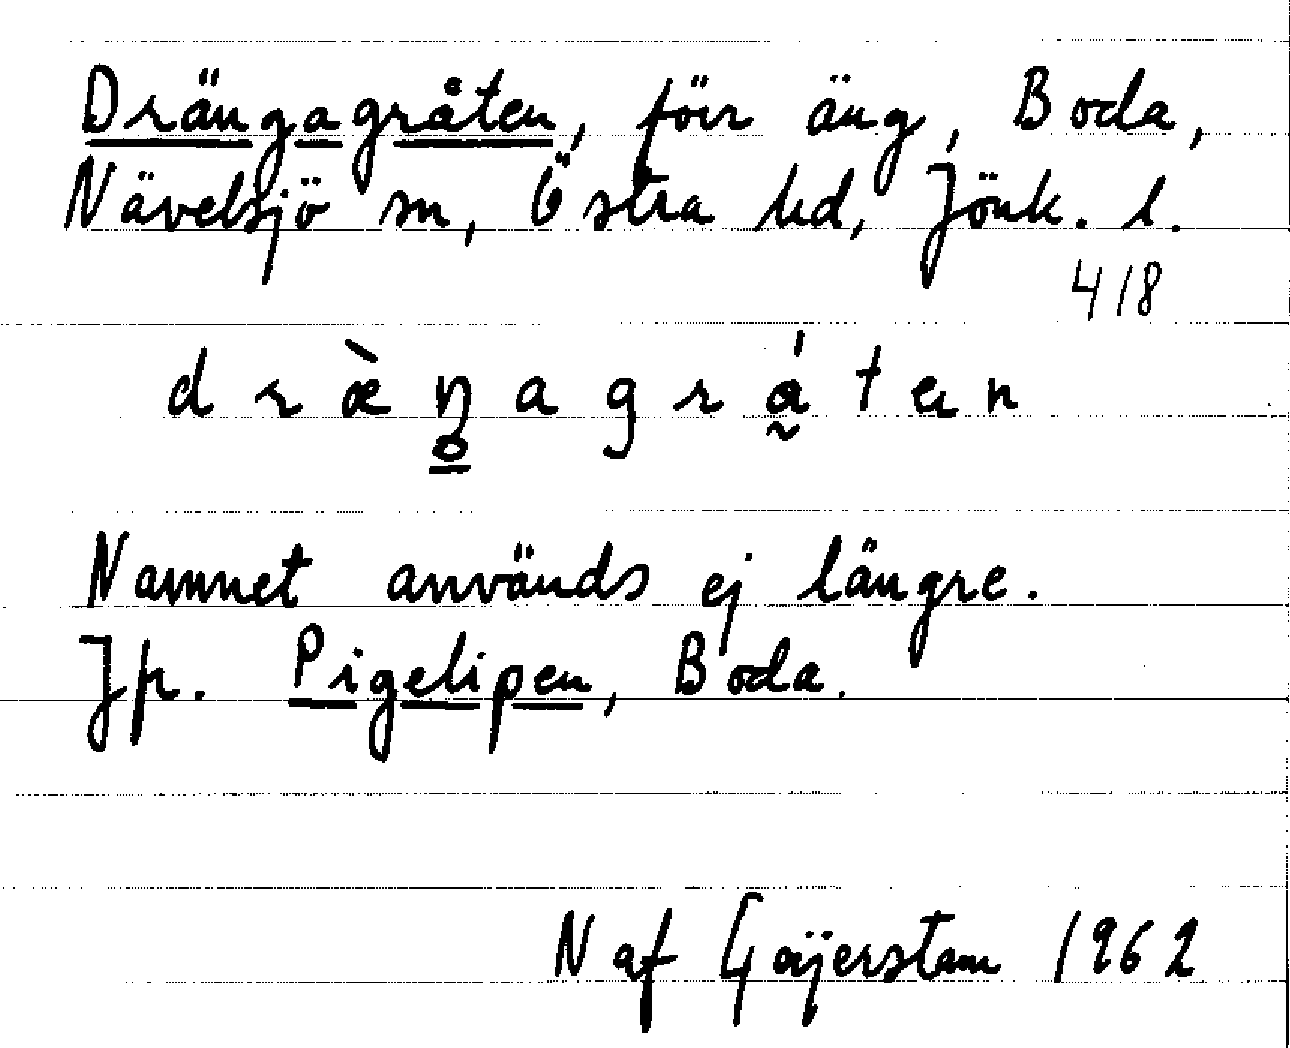 Drängagråten, förr äng, Boda,
Nävelsjö sn, Östra hd, Jönk. l.
418
Namnet används ej längre.
Jfr. Pigelipen, Boda.
N af Geijerstam 1962